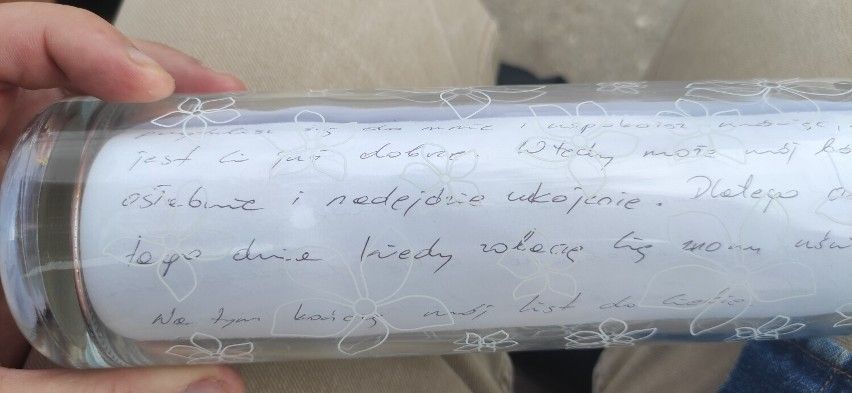 się do mnie i uspokoisz mówiąc,
jest Ci już dobrze. Wtedy może mój
osłabnie i nadejdzie ukojenie. Dlatego
tego dnia kiedy zobaczę Cię znowu
Na tym kończę mój list do Ciebie